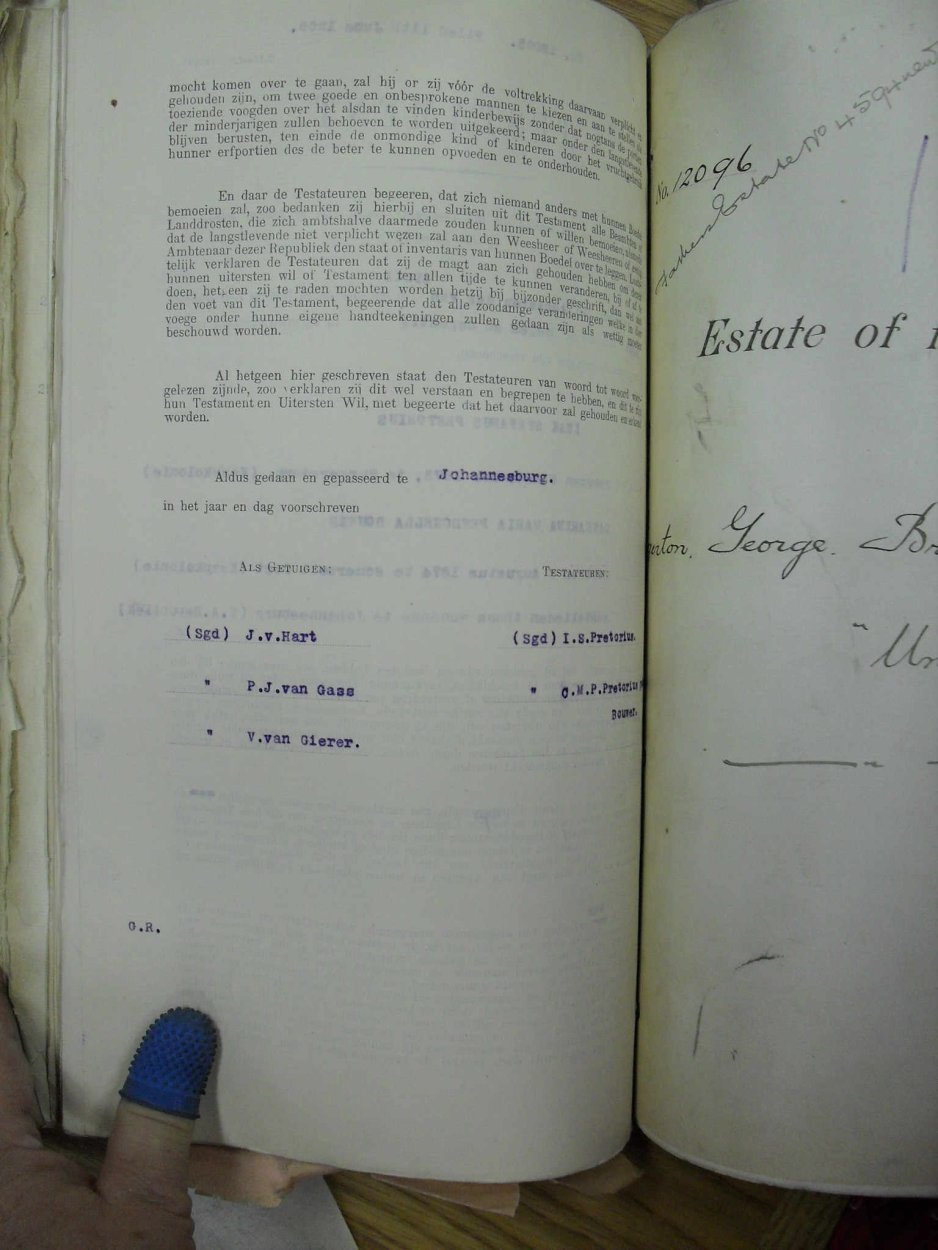 mocht komen over te gaan, zal hij or zij vóór de voltrekking daarvan verplicht en
gehouden zijn, om twee goede en onbesprokene mannen te kiezen en aan te stellen als
toeziende voogden over het alsdan te vinden kinderbewijs zonder dat nogtans de portien
der minderjarigen zullen behoeven te worden uitgekeerd; maar onder den langstlevende
blijven berusten, ten einde de onmondige kind of kinderen door het vruchtgebruik
hunner erfportien des de beter te kunnen opvoeden en te onderhouden.
En daar de Testateuren begeeren, dat zich niemand anders met hunnen Boedel
bemoeien zal, zoo bedanken zij hierbij en sluiten uit dit Testament alle
Landdrosten, die zich ambtshalve daarmede zouden kunnen of willen bemoeien,
dat de langstlevende niet verplicht wezen zal aan den Weesheer of Weesheeren of
Ambtenaar dezer Republiek den staat of inventaris van hunnen Boedel over te leggen,
telijk verklaren de Testateuren dat zij de magt aan zich gehouden hebben om dezen
hunnen uitersten wil of Testament ten allen tijde te kunnen veranderen, bij of af te
doen, hetzeen zij te raden mochten worden hetzij bij bijzonder geschrift, dan wel aan
den voet van dit Testament, begeerende dat alle zoodanige veranderingen welke in dier
voege onder hunne eigene handteekeningen zullen gedaan zijn als wettig moeten
beschouwd worden.
Al hetgeen hier geschreven staat den Testateuren van woord tot woord voor-
gelezen zijnde, zoo verklaren zij dit wel verstaan en begrepen te hebben, en dit te zijn
hun Testament en Uitersten Wil, met begeerte dat het daarvoor zal gehouden en erkend
worden.
Aldus gedaan en gepasseerd te Johannesburg.
in het jaar en dag voorschreven
ALS GETUIGEN: TESTATEUREN:
(Sgd) J.v.Hart (Sgd) I.S.Pretorius.
" P.J.van Gass " C.M.P.Pretorius
Bouwer.
" V.van Gierer.
G.R.
No. 12096
Fathers Estate No 4594
Estate of
George. Br
"Un